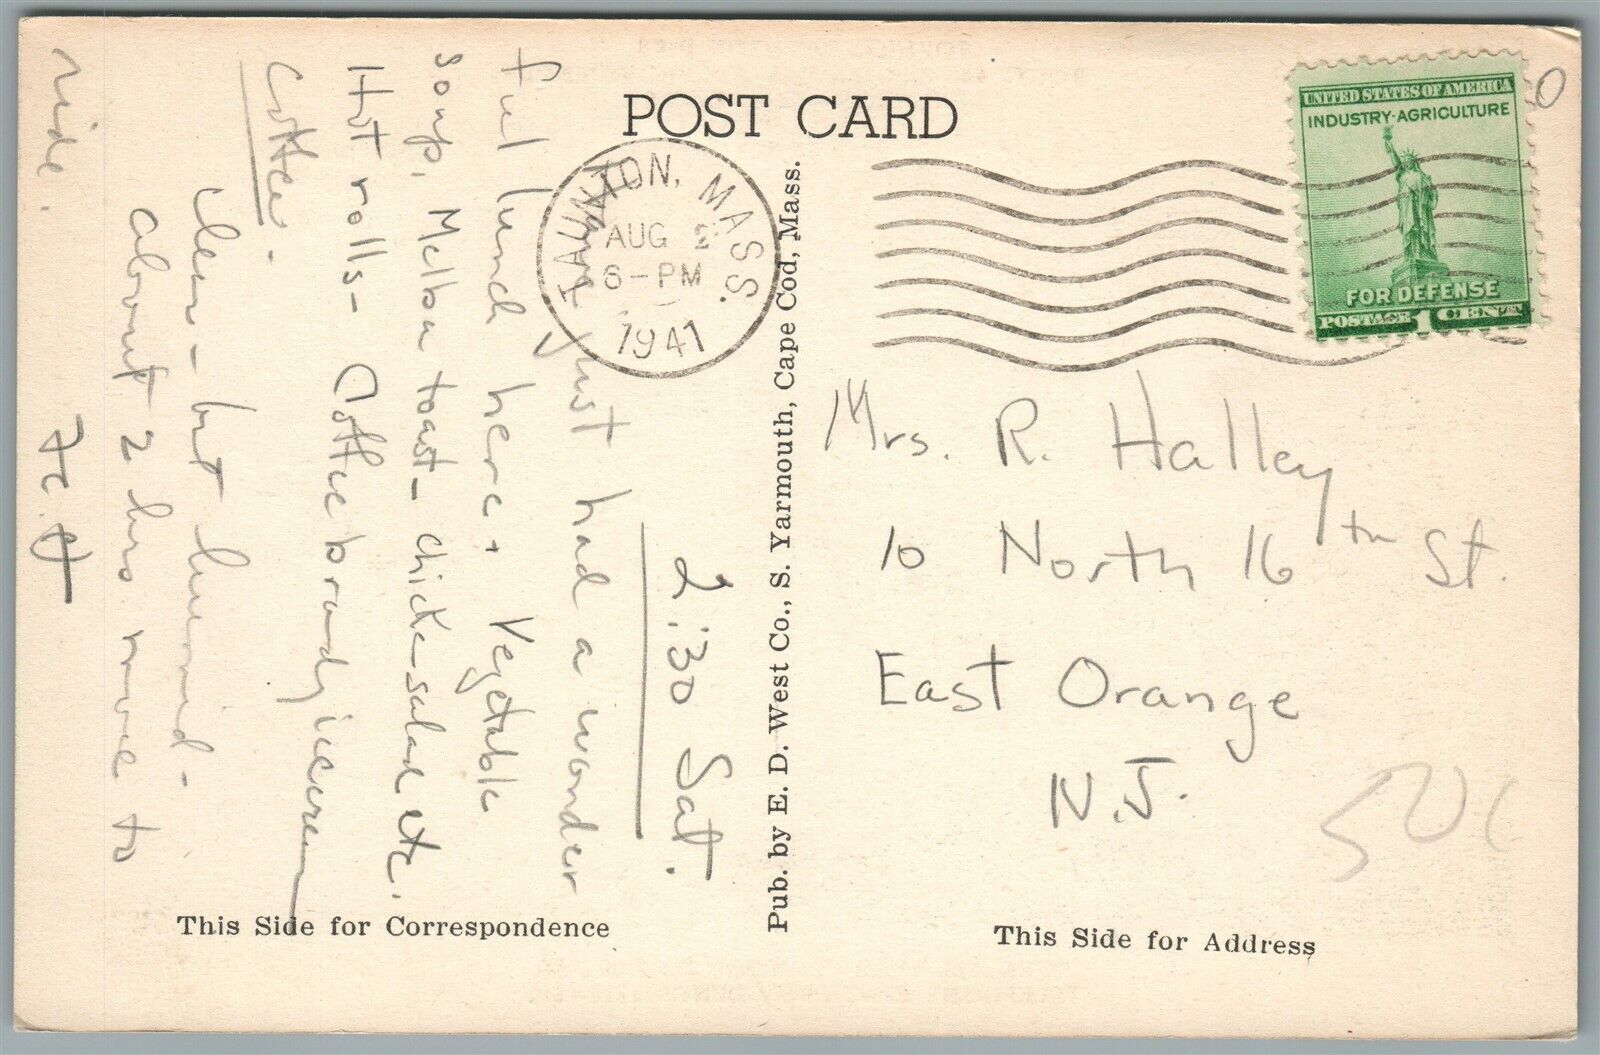 POST CARD
TAUNTON, MASS.
AUG 2
6-PM
1941
UNITED STATES OF AMERICA
INDUSTRY-AGRICULTURE
FOR DEFENSE
POSTAGE 1 CENT
2:30 Sat.
Have just had a wonder
ful lunch here. Vegetable
soup, Melba toast - chicken salad etc.
Hot rolls - Coffee brandy icecream
Coffee -
clear - but humid -
about 2 hrs more to
ride.
Pub. by E. D. West Co., S. Yarmouth, Cape Cod, Mass.
Mrs. R. Halley
10 North 16th St.
East Orange
N.J.
This Side for Correspondence
This Side for Address